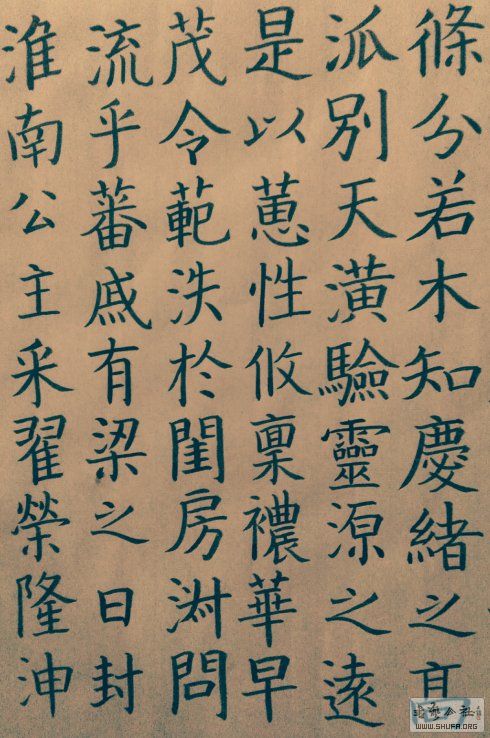 條分若木知慶緒之
泒別天潢驗靈源之遠
是以蕙性攸稟襛華早
茂令範泆於閨房淑問
流乎蕃戚有梁之日封
淮南公主采翟榮隆沖
WWW.SHUFA.ORG